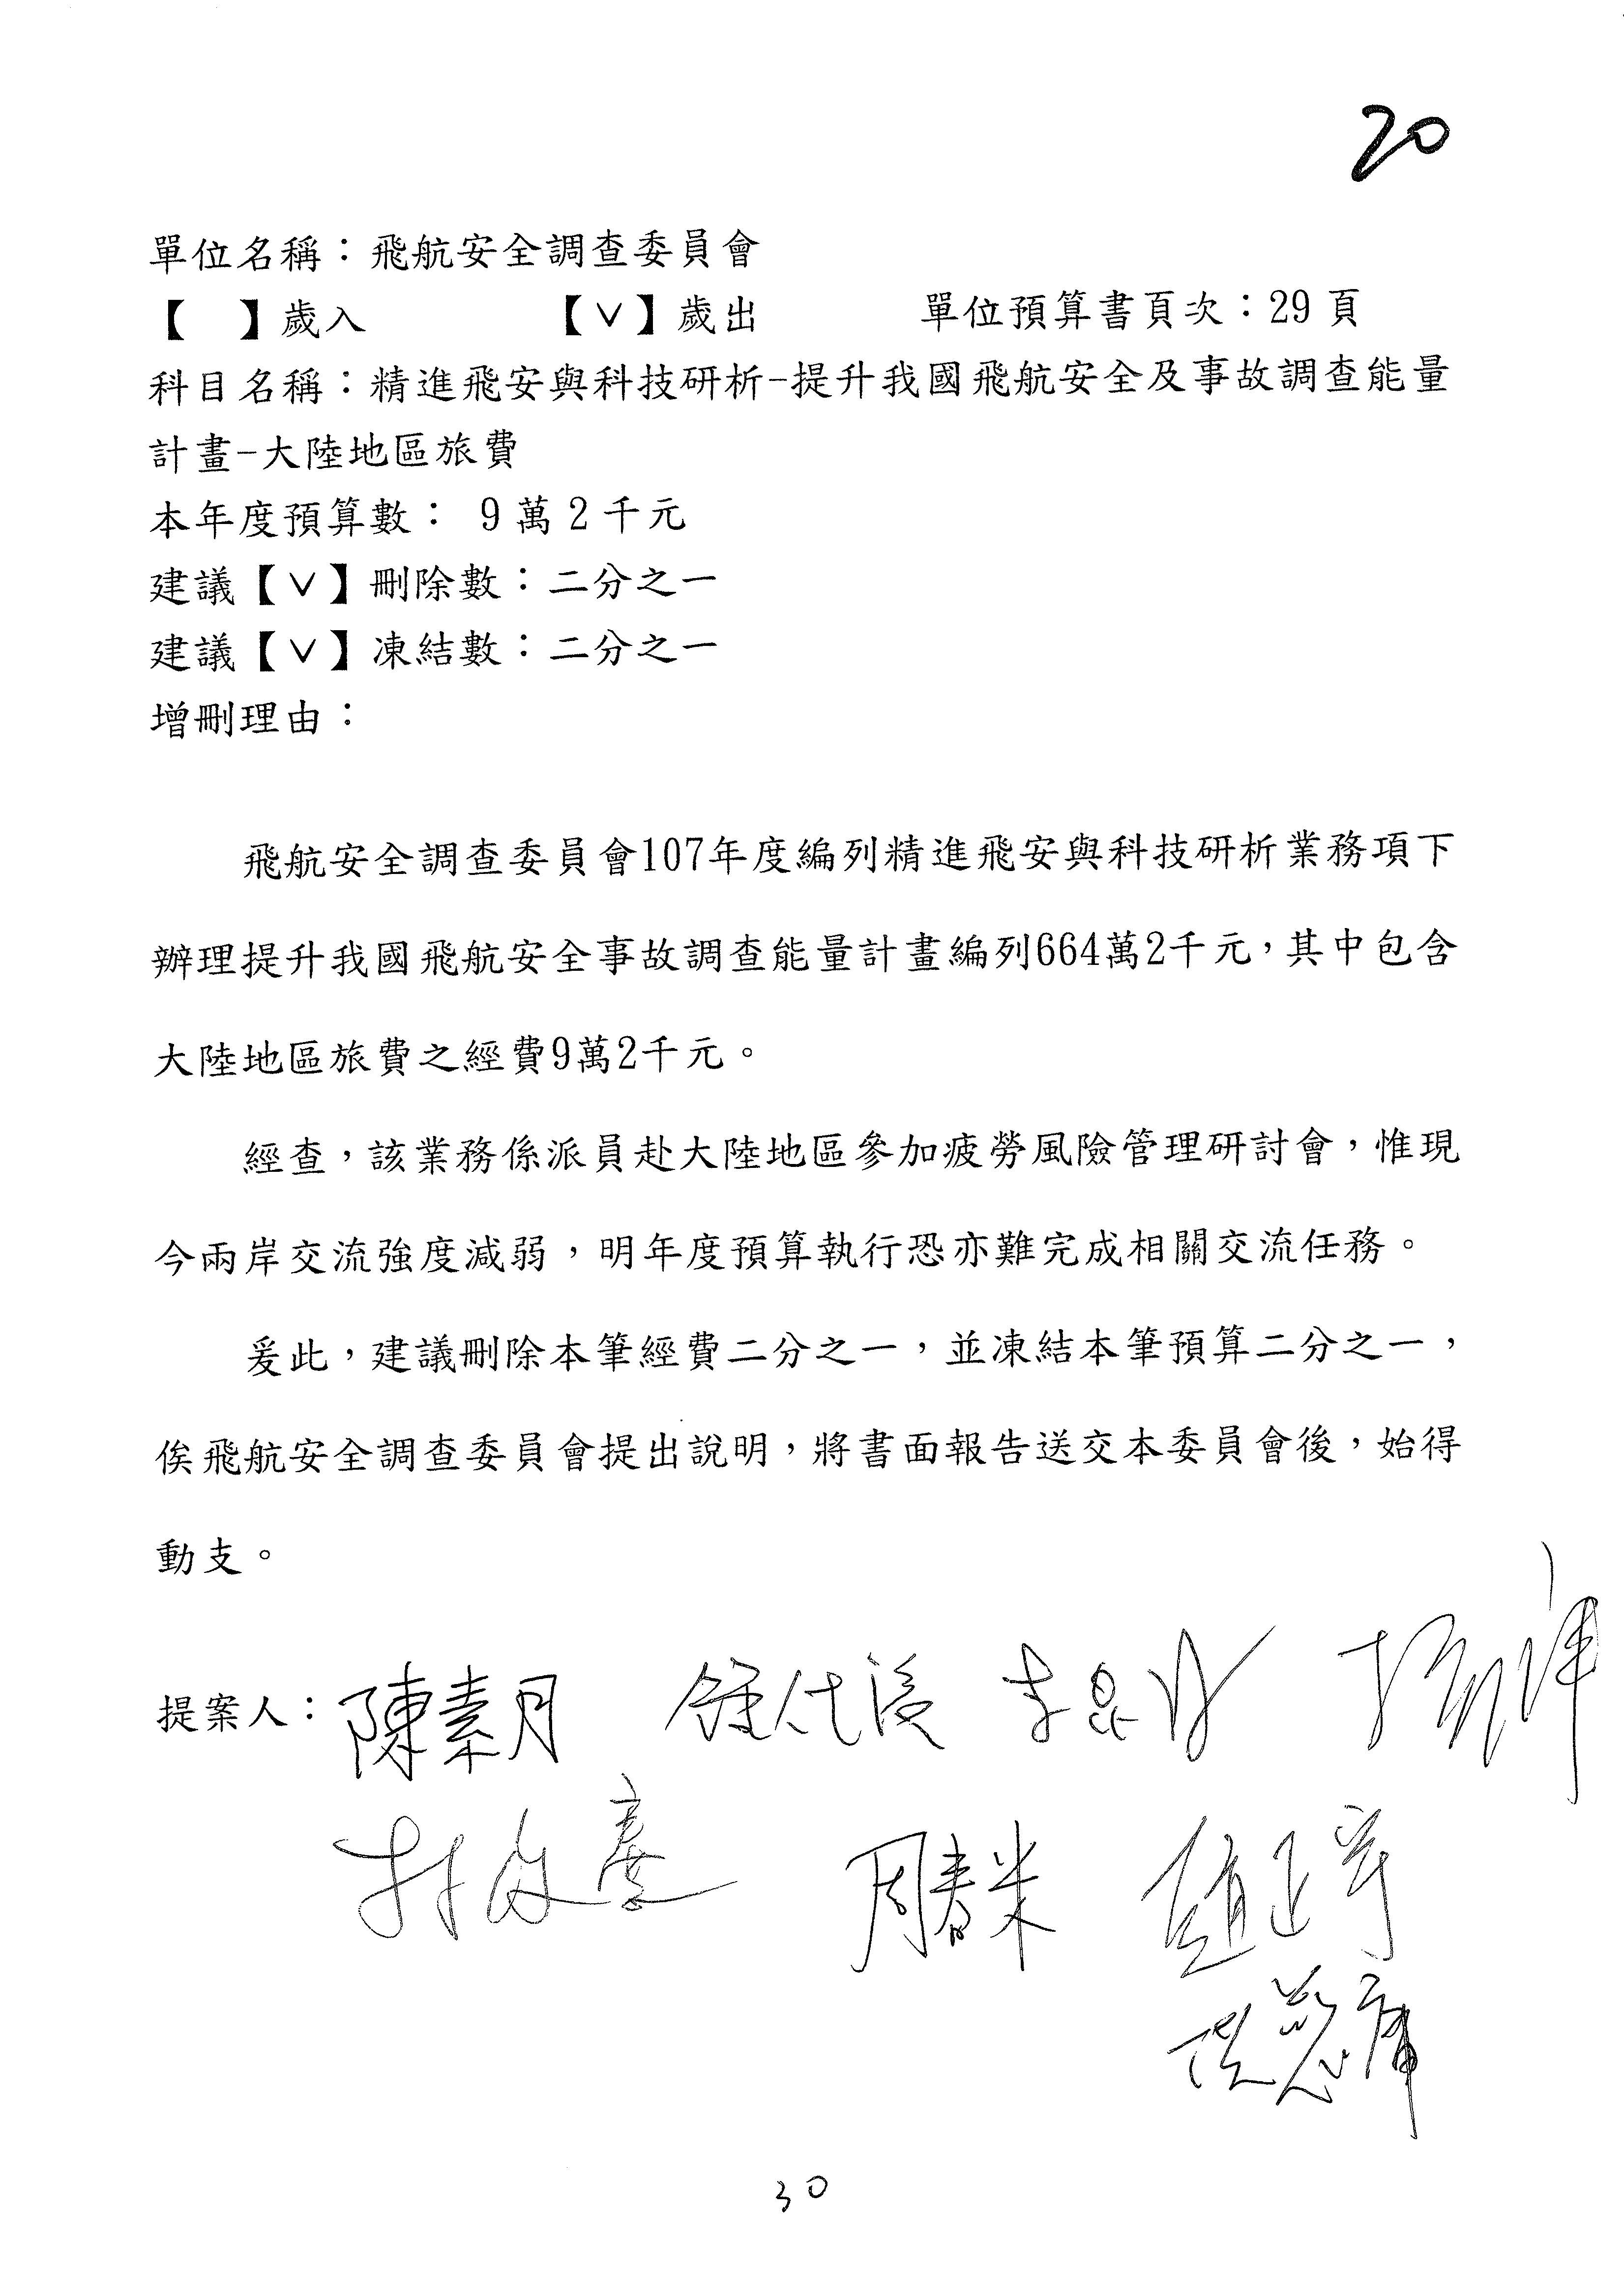 20
單位名稱：飛航安全調查委員會
【　】歲入　【∨】歲出　單位預算書頁次：29 頁
科目名稱：精進飛安與科技研析-提升我國飛航安全及事故調查能量
計畫-大陸地區旅費
本年度預算數： 9 萬 2 千元
建議【∨】刪除數：二分之一
建議【∨】凍結數：二分之一
增刪理由：
飛航安全調查委員會107年度編列精進飛安與科技研析業務項下
辦理提升我國飛航安全事故調查能量計畫編列664萬2千元，其中包含
大陸地區旅費之經費9萬2千元。
經查，該業務係派員赴大陸地區參加疲勞風險管理研討會，惟現
今兩岸交流強度減弱，明年度預算執行恐亦難完成相關交流任務。
爰此，建議刪除本筆經費二分之一，並凍結本筆預算二分之一，
俟飛航安全調查委員會提出說明，將書面報告送交本委員會後，始得
動支。
提案人：陳素月 李昆澤
周春米
30